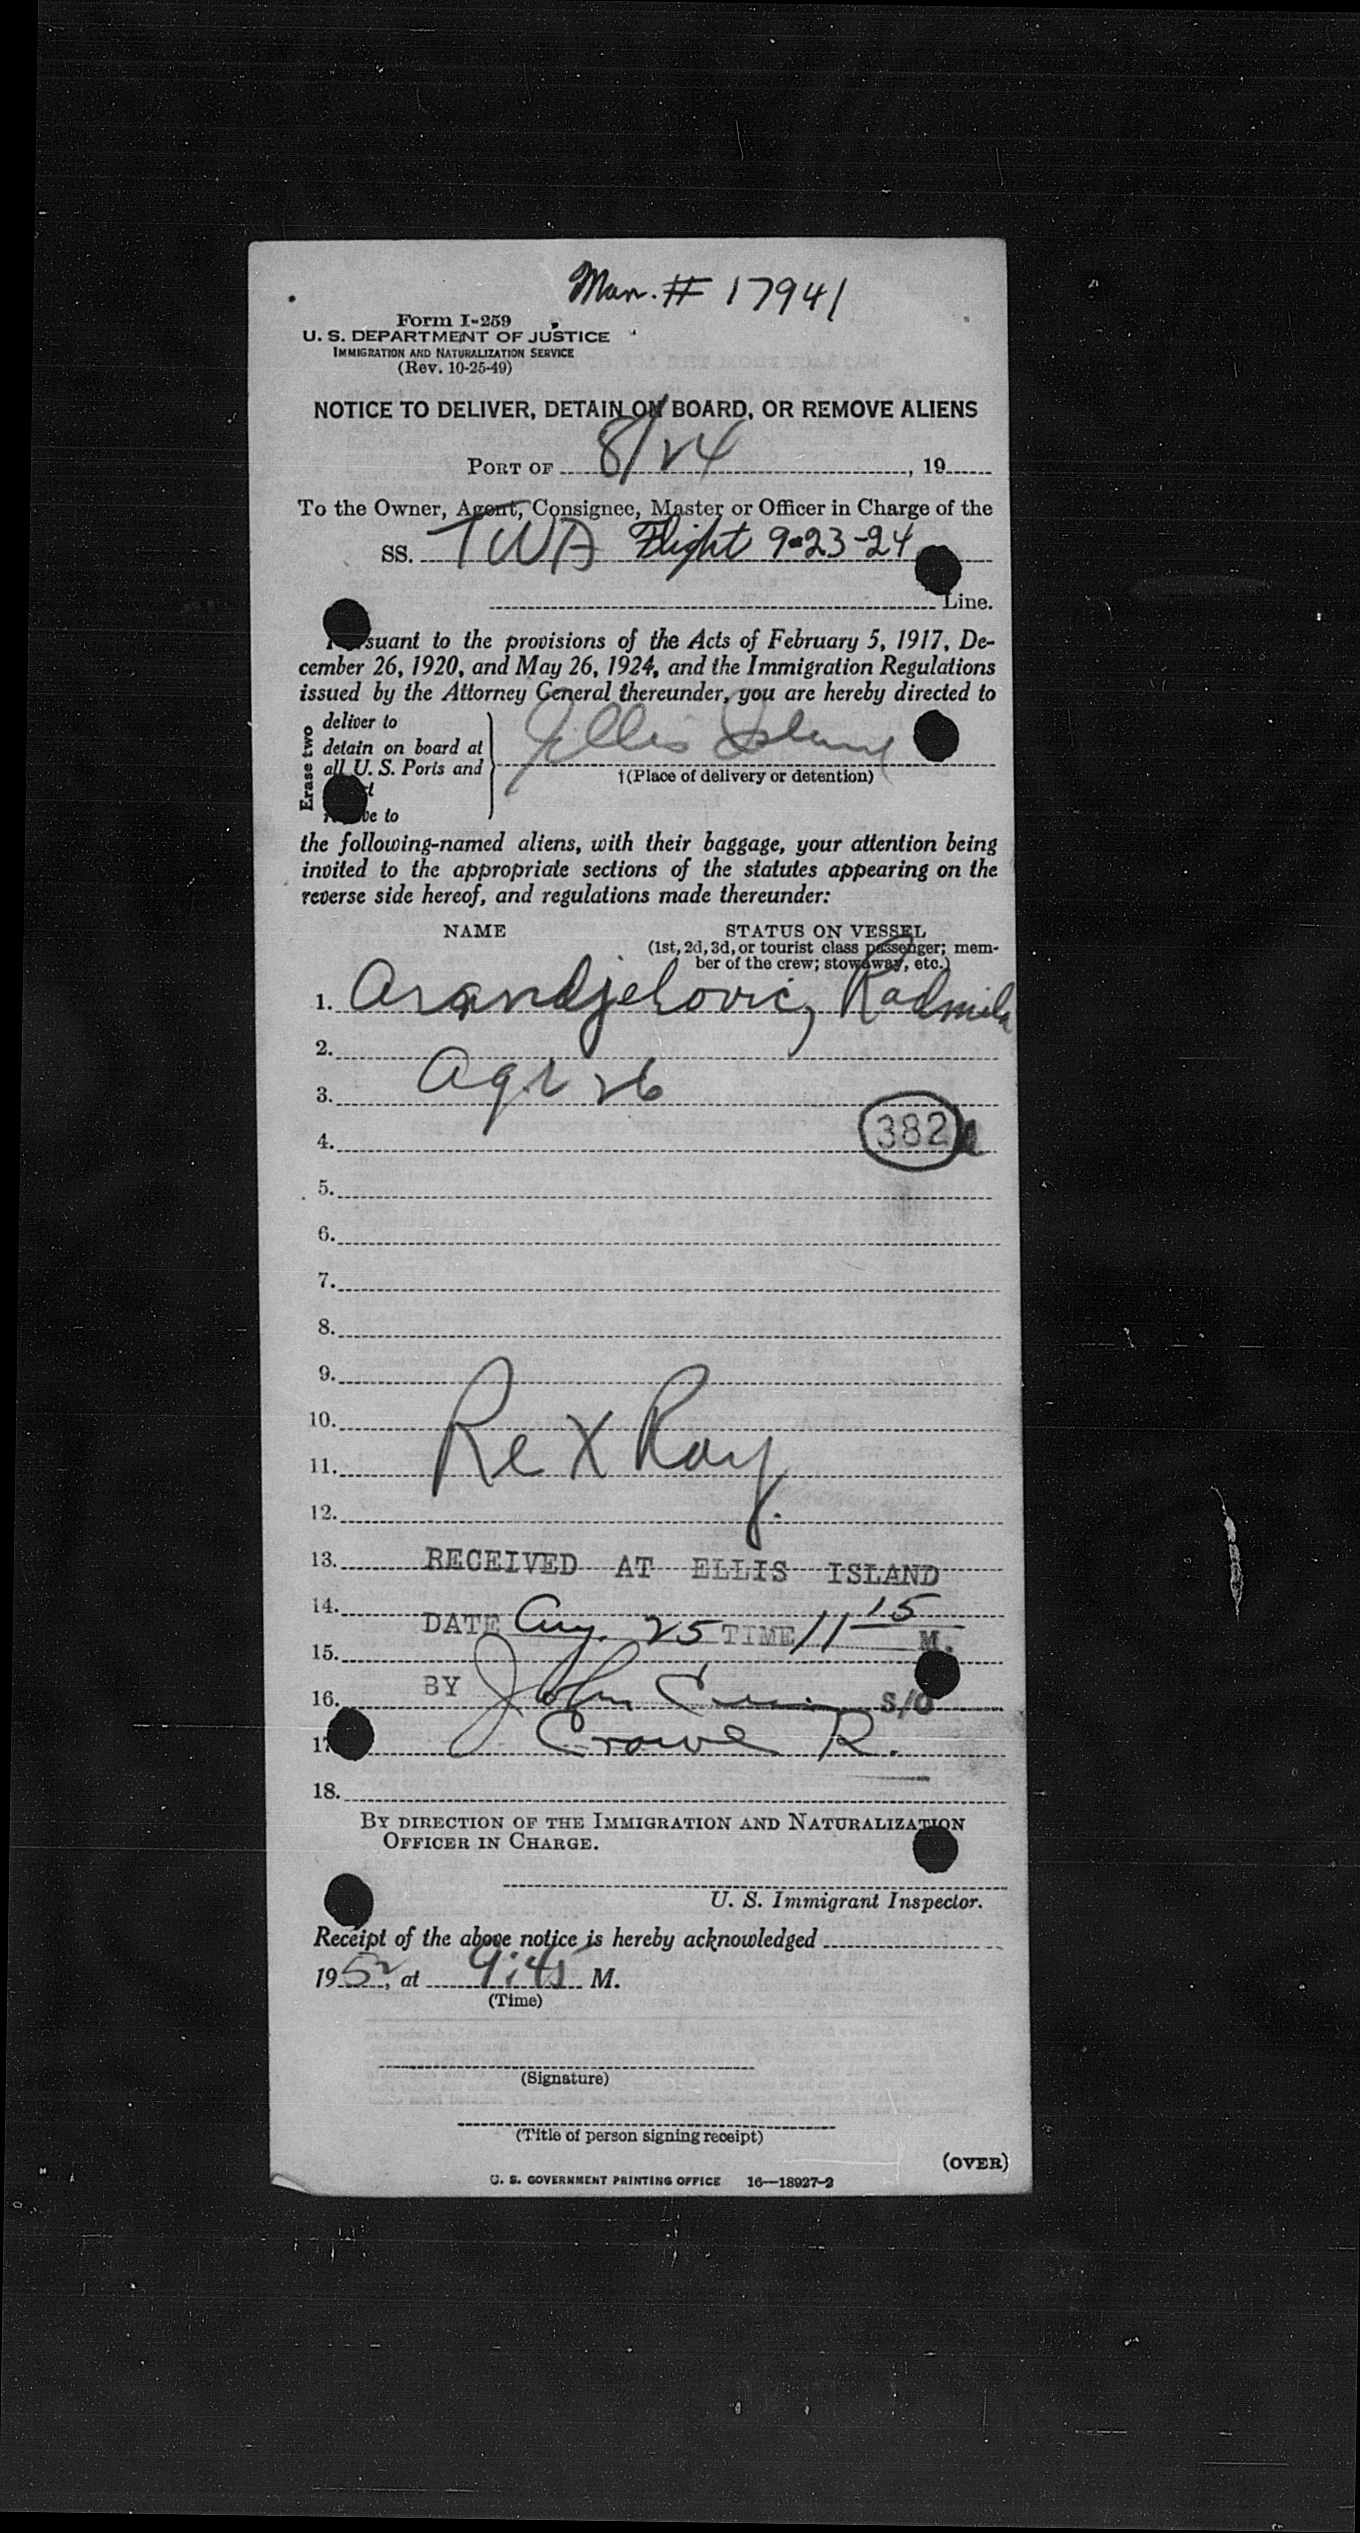 Man. # 17941
Form I-259
U. S. DEPARTMENT OF JUSTICE
IMMIGRATION AND NATURALIZATION SERVICE
(Rev. 10-25-49)
NOTICE TO DELIVER, DETAIN ON BOARD, OR REMOVE ALIENS
PORT OF 8/24, 19
To the Owner, Agent, Consignee, Master or Officer in Charge of the
SS. TWA Flight 9-23-24
Line.
suant to the provisions of the Acts of February 5, 1917, De-
cember 26, 1920, and May 26, 1924, and the Immigration Regulations
issued by the Attorney General thereunder, you are hereby directed to
Erase two
deliver to
detain on board at
all U. S. Ports and
to
Ellis Island
†(Place of delivery or detention)
the following-named aliens, with their baggage, your attention being
invited to the appropriate sections of the statutes appearing on the
reverse side hereof, and regulations made thereunder:
NAME STATUS ON VESSEL
(1st, 2d, 3d, or tourist class passenger; mem-
ber of the crew; stowaway, etc.)
1. Arandjelovic, Radmila
2.
3. Age 26
4. 382
5.
6.
7.
8.
9.
10.
11. Re X Ray.
12.
13. RECEIVED AT ELLIS ISLAND
14.
DATE Aug. 25 TIME 11 15 M.
15.
16. BY John S/O
17 Crowe R.
18.
BY DIRECTION OF THE IMMIGRATION AND NATURALIZATION
OFFICER IN CHARGE.
U. S. Immigrant Inspector.
Receipt of the above notice is hereby acknowledged
1952, at 9:45 M.
(Time)
(Signature)
(Title of person signing receipt)
(OVER)
U. S. GOVERNMENT PRINTING OFFICE 16—18927-2